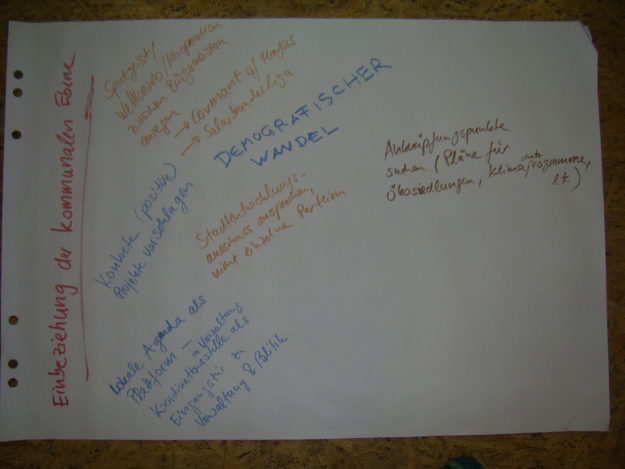 Einbeziehung der kommunalen Ebene
Sportgeist /
Wettbewerb / Kooperation
zwischen Bürgermeistern
anregen
→ Covenant of Mayors
→ Solarbundesliga
DEMOGRAFISCHER
WANDEL
Anknüpfungspunkte
suchen (Pläne für
Ökosiedlungen, Klimaschutzprogramme,
etc.)
Konkrete (positive)
Projekte vorschlagen
Stadtentwicklungs-
ausschuss ansprechen,
nicht einzelne Parteien
Lokale Agenda als
Plattform –
in Verwaltung
Koordinationsstelle als
Eingangstür zu
Verwaltung & Politik